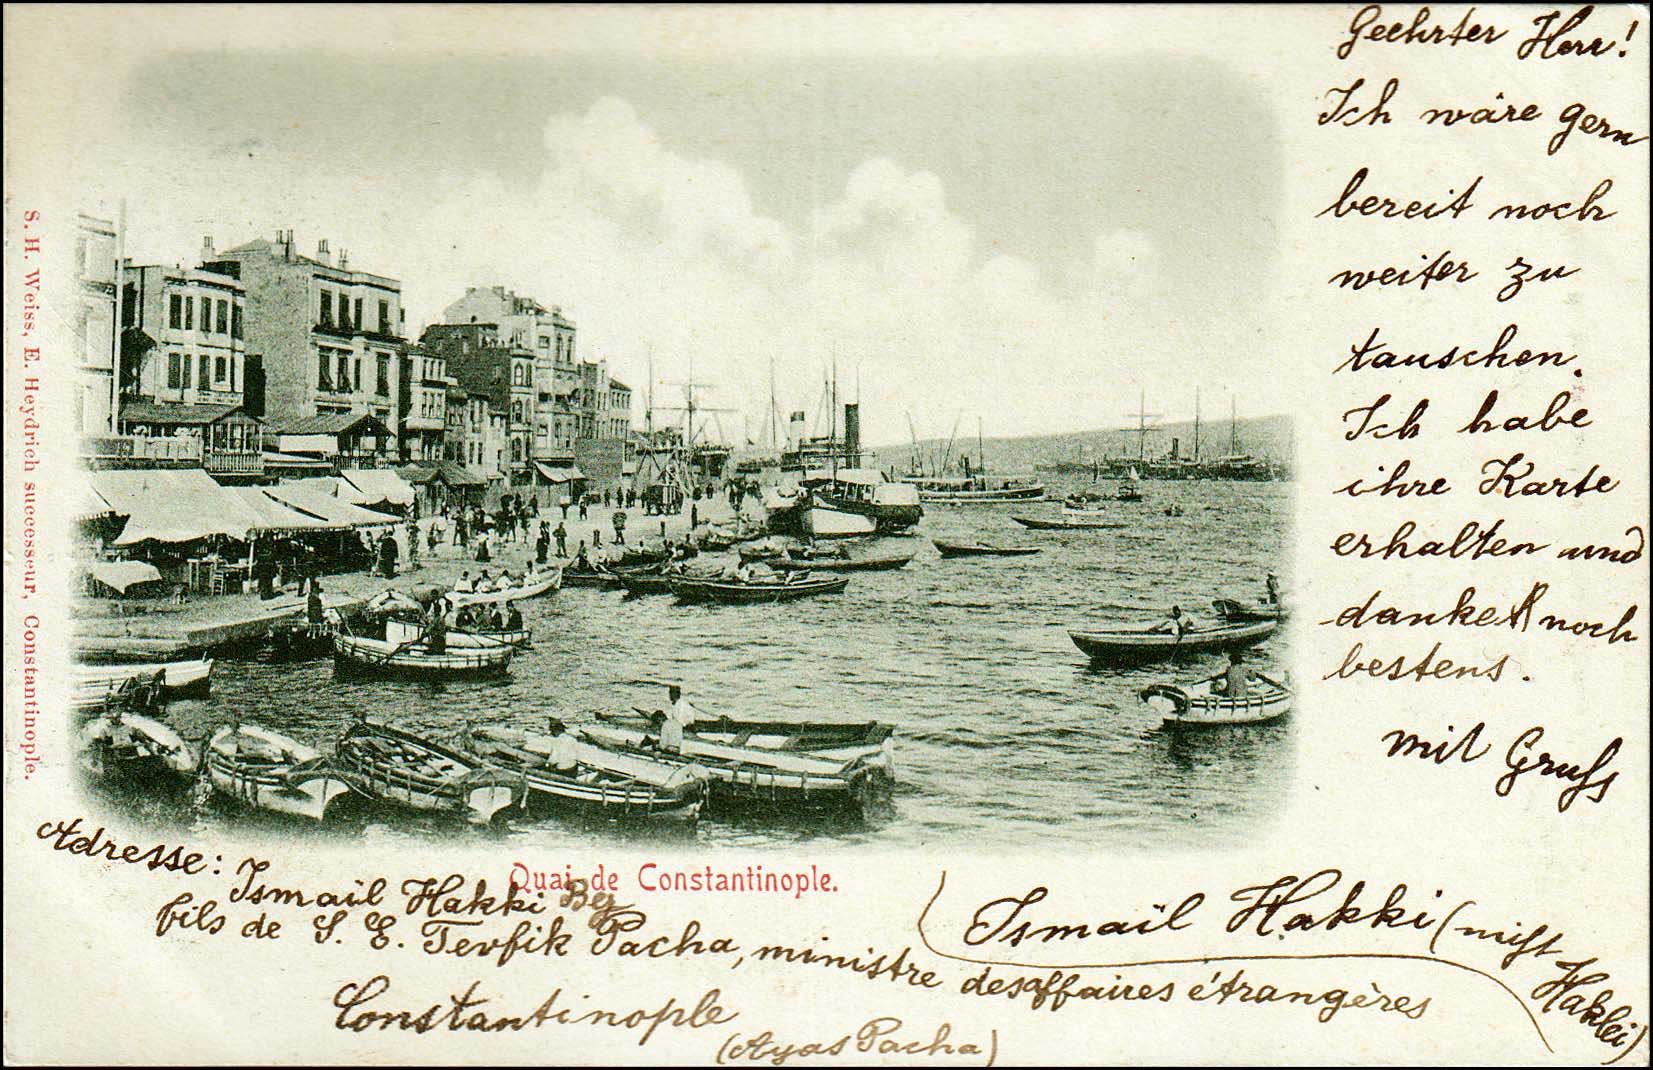 Geehrter Herr!
Ich wäre gern
bereit noch
weiter zu
tauschen.
Ich habe
ihre Karte
erhalten und
danke noch
bestens.
mit Gruss
S. H. Weiss, E. Heydrich successeur, Constantinople.
Quai de Constantinople.
Adresse:
Ismaïl Hakki Bey
fils de S. E. Tevfik Pacha, ministre des affaires étrangères
Constantinople
(Ayas Pacha)
Ismaïl Hakki (nicht
Haklei)